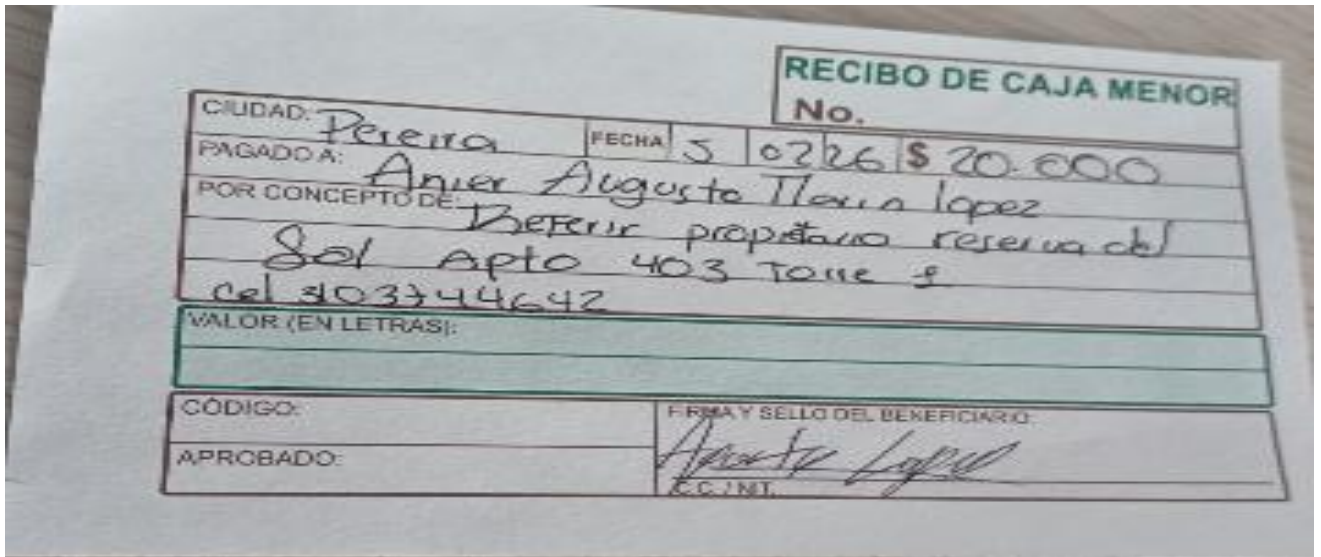 RECIBO DE CAJA MENOR
No.
CIUDAD: Pereira FECHA 5 02 26 $ 20.000
PAGADO A: Anier Augusto Marin lopez
POR CONCEPTO DE: Referir propietario reserva del
Sol Apto 403 Torre
cel 3103744642
VALOR (EN LETRAS):
CÓDIGO: FIRMA Y SELLO DEL BENEFICIARIO:
APROBADO: Lopez
C.C. / NIT.